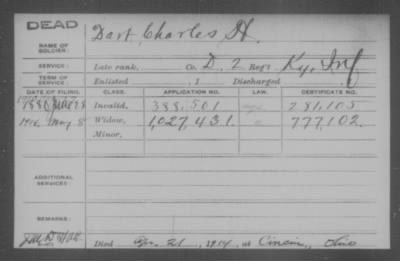 DEAD
NAME OF SOLDIER: Dart, Charles H.
SERVICE: Late rank, Co. D, 2 Reg't Ky. Inf
TERM OF SERVICE: Enlisted , 1 Discharged
DATE OF FILING. CLASS. APPLICATION NO. LAW. CERTIFICATE NO.
1880 Invalid. 388,501 281,105
1914 May 8 Widow, 1,027,431. 777,102.
Minor.
ADDITIONAL SERVICES:
REMARKS:
Died Apr. 21, 1914, at Cincin., Ohio